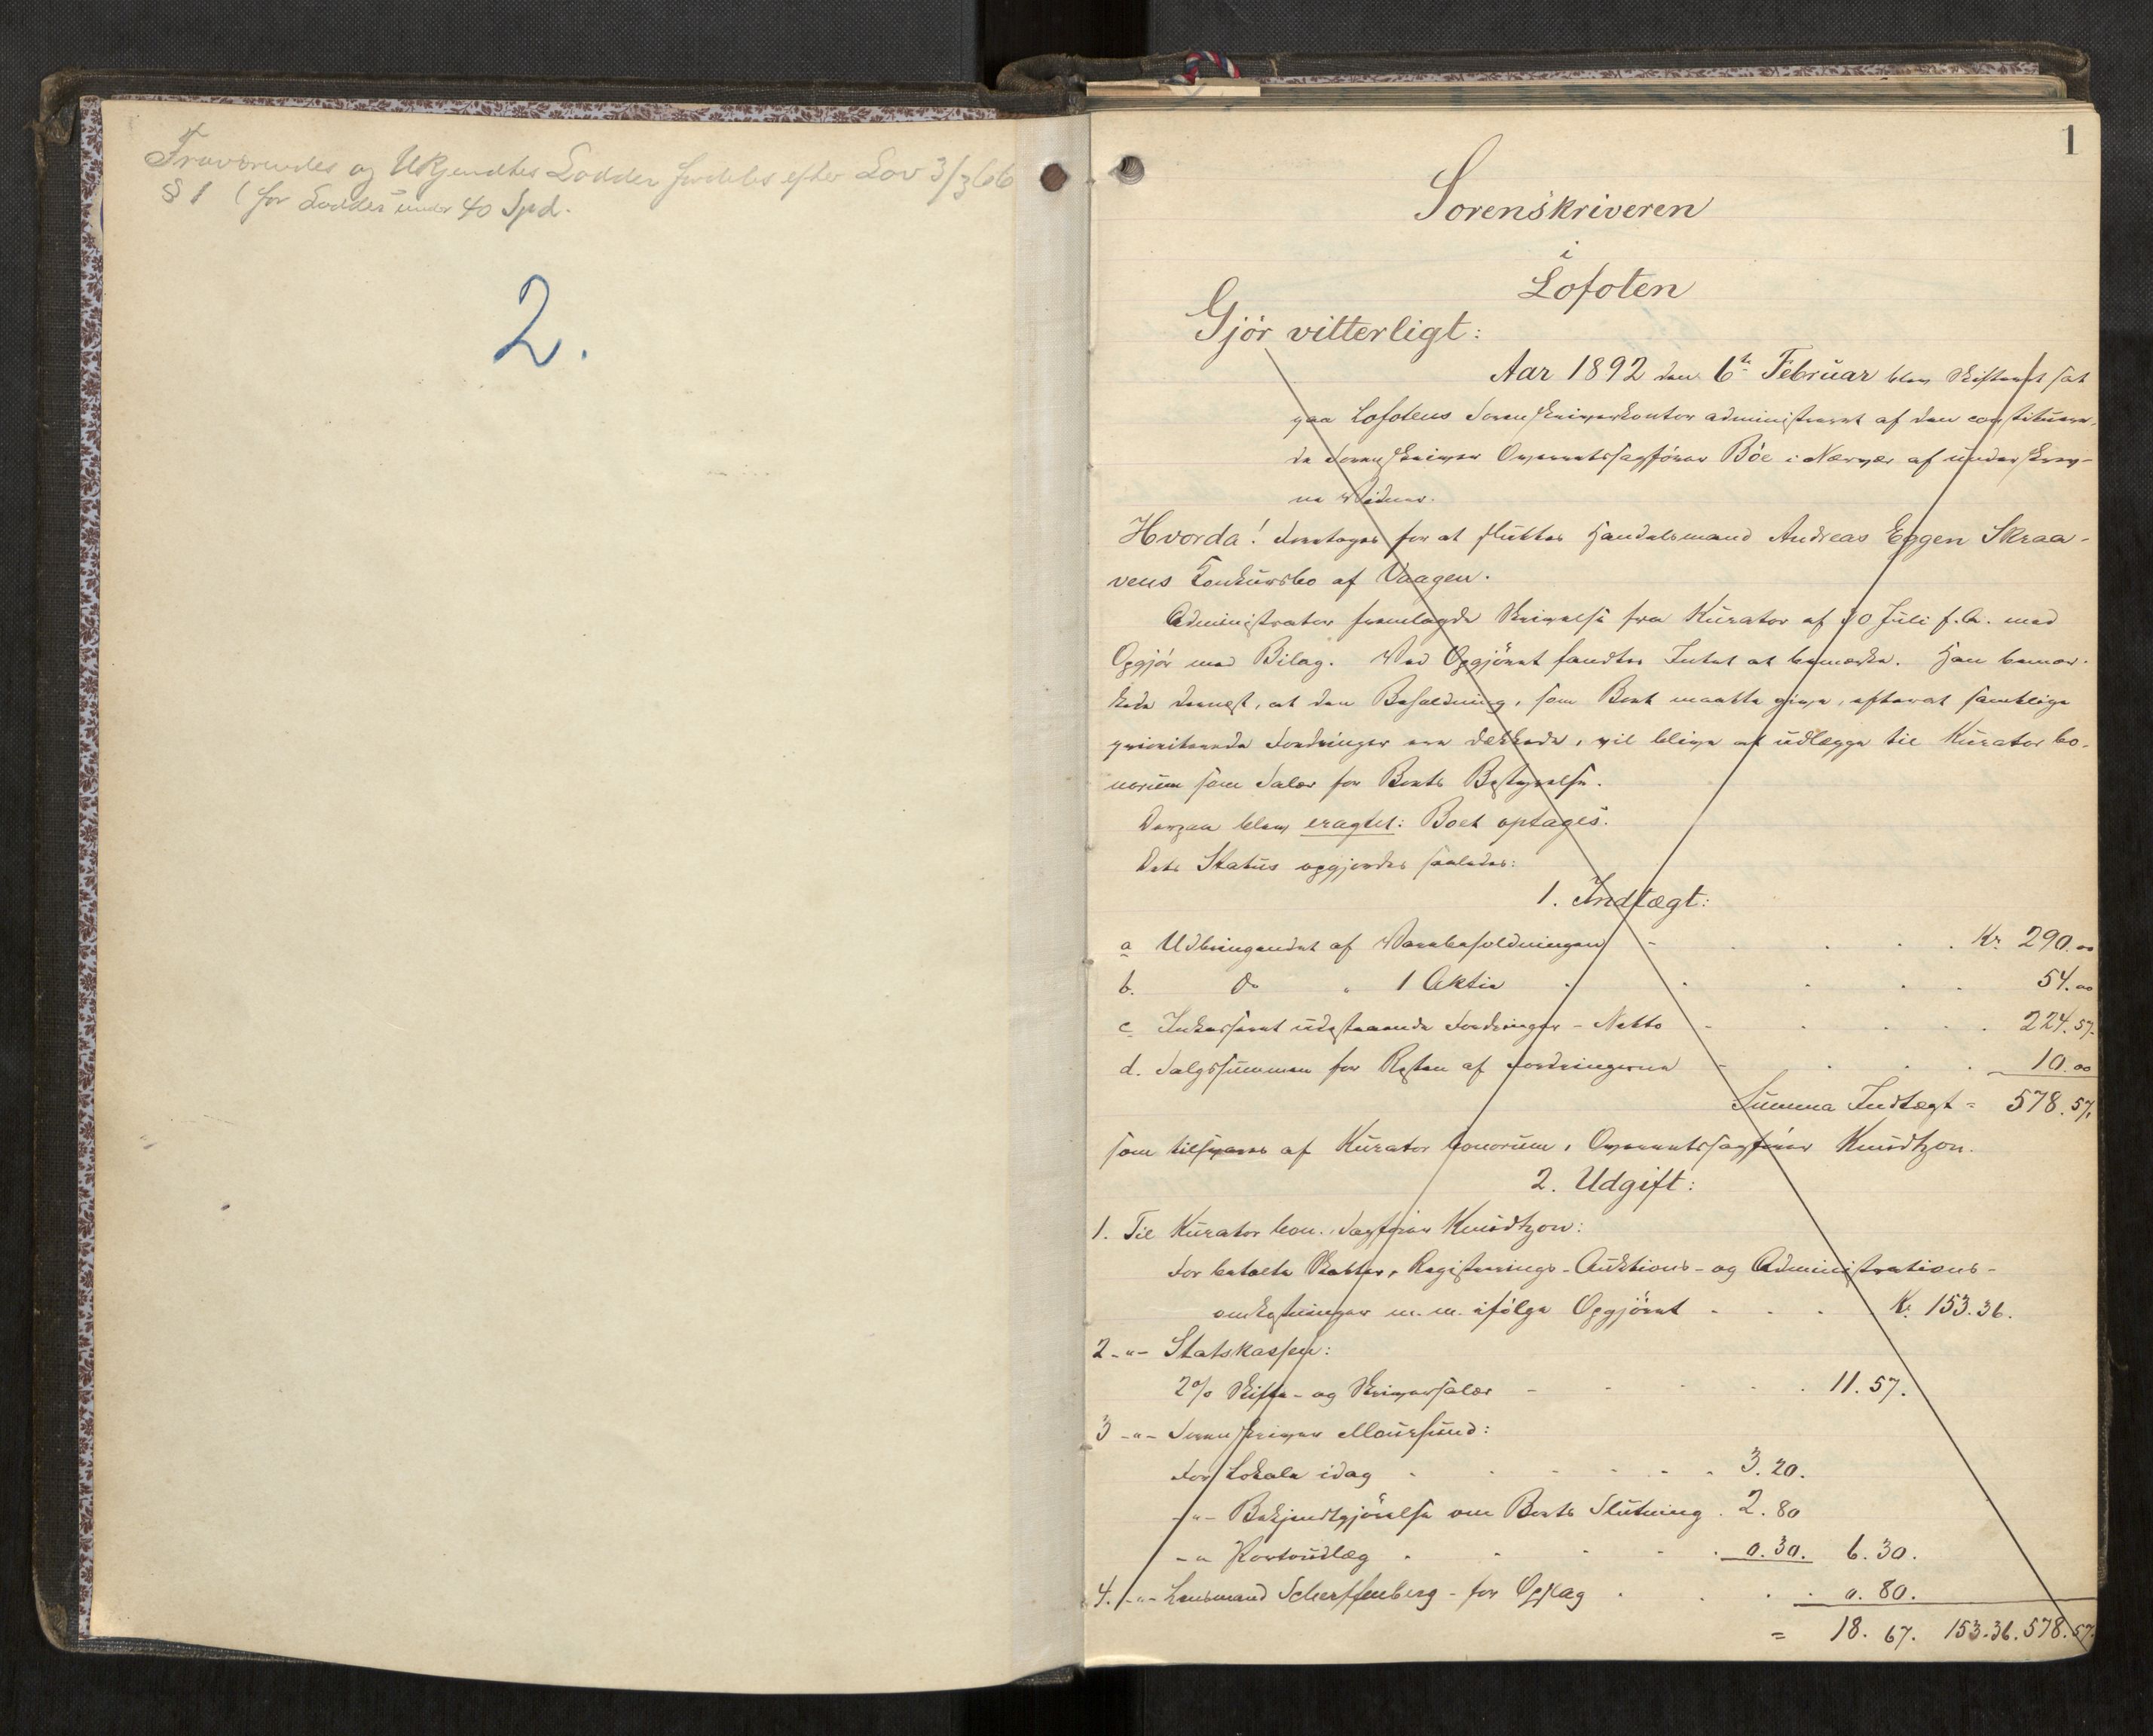 Fraværendes og Ukjendtes Lodder fordeles efter Lov 3/3 66
§ 1 (for Lodder under 40 Spd.
2.
1
Sorenskriveren
i
Lofoten
Gjör vitterligt:
Aar 1892 den 6te Februar blev Skifteret sat
paa Lofotens Sorenskriverkontor administreret af den constitueren-
de Sorenskriver Overretssagförer Böe i Nærvær af underskrev-
ne Vidner.
Hvorda! Foretoges for at sluttes Handelsmand Andreas Eggen Skraa-
vens Konkursbo af Vaagen.
Administrator fremlagde Skrivelse fra Kurator af 30 Juli f.A. med
Opgjör med Bilag. Ved Opgjöret fandtes Intet at bemærke. Han bemær-
kede dernest, at den Beholdning, som Boet maatte give, efterat samtlige
prioriterede Fordringer ere dækkede, vil blive at udlægge til Kurator bo-
norum som Salær for Boets Bestyrelse.
Derpaa blev eragtet: Boet optages.
Dets Status opgjordes saaledes:
1. Indtægt:
a Udbringendet af Varebeholdningen - Kr. 290.00
b. Do " 1 Aktie 54.00
c Inkasseret udestaaende Fordringer - Netto - 224.57.
d. Salgssummen for Resten af Fordringerne - 10.00
Summa Indtægt = 578.57.
som tilsvares af Kurator bonorum, Overretssagförer Knudtzon.
2. Udgift:
1. Til Kurator bon., Sagförer Knudtzon:
For betalte Skatter, Registrerings- Auktions- og Administrations-
omkostninger m.m. ifölge Opgjöret - Kr. 153.36.
2 -"- Statskassen:
2% Skifte- og Skriversalær - 11.57.
3 -"- Sorenskriver Maursund:
For Lokale idag 3.20.
-"- Bekjendtgjörelse om Boets Slutning 2.80
-"- Portoudlæg 0.30. 6.30.
4. -"- Lensmand Scherffenberg - for Opslag 0.80.
= 18.67. 153.36. 578.57.